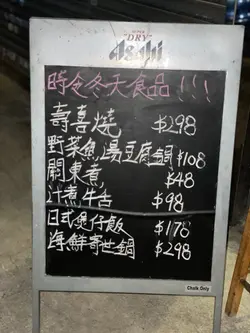 SUPER
"DRY"
Asahi
時令冬天食品!!!
壽喜燒 $298
野菜魚湯豆腐鍋 $108
關東煮 $48
汁煮牛舌 $98
日式煲仔飯 $178
海鮮寄世鍋 $298
Chalk Only